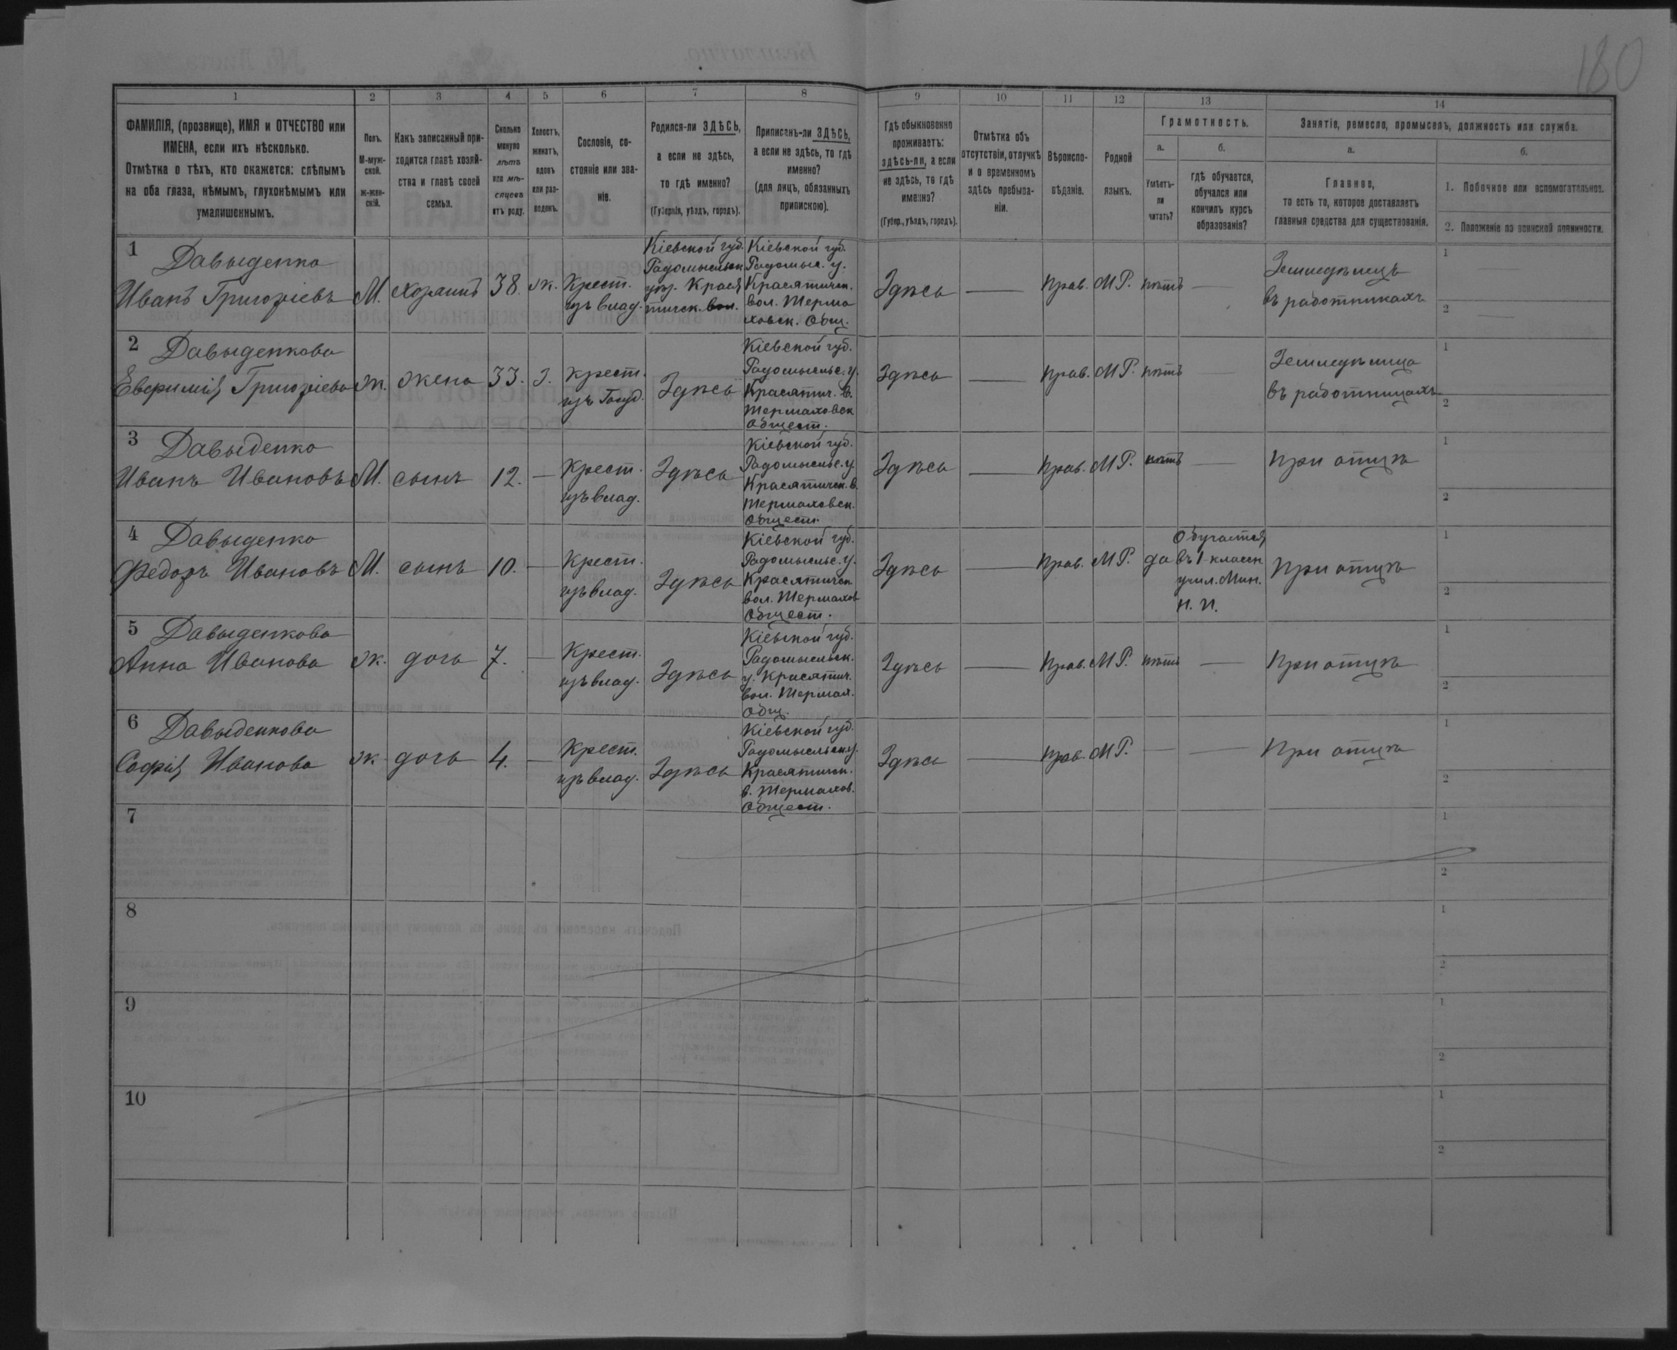 180
1
2
3
4
5
6
7
8
9
10
11
12
13
14
ФАМИЛІЯ, (прозвище), ИМЯ и ОТЧЕСТВО или
ИМЕНА, если ихъ нѣсколько.
Отмѣтка о тѣхъ, кто окажется: слѣпымъ
на оба глаза, нѣмымъ, глухонѣмымъ или
умалишеннымъ.
Полъ.
М-муж-
ской.
Ж-жен-
скій.
Какъ записанный при-
ходится главѣ хозяй-
ства и главѣ своей
семьи.
Сколько
минуло
лѣтъ
или мѣ-
сяцевъ
отъ роду.
Холостъ,
женатъ,
вдовъ
или раз-
веденъ.
Сословіе, со-
стояніе или зва-
ніе.
Родился-ли ЗДѢСЬ,
а если не здѣсь,
то гдѣ именно?
(Губернія, уѣздъ, городъ).
Приписанъ-ли ЗДѢСЬ,
а если не здѣсь, то гдѣ
именно?
(для лицъ, обязанныхъ
припискою).
Гдѣ обыкновенно
проживаетъ:
здѣсь-ли, а если
не здѣсь, то гдѣ
именно?
(Губер., уѣздъ, городъ).
Отмѣтка объ
отсутствіи, отлучкѣ
и о временномъ
здѣсь пребыва-
ніи.
Вѣроиспо-
вѣданіе.
Родной
языкъ.
Грамотность.
а.
Умѣетъ-
ли
читать?
б.
гдѣ обучается,
обучался или
кончилъ курсъ
образованія?
Занятіе, ремесло, промыселъ, должность или служба.
а.
Главное,
то есть то, которое доставляетъ
главныя средства для существованія.
б.
1. Побочное или вспомогательное.
2. Положеніе по воинской повинности.
1
Давыденко
Иванъ Григорієвъ
М.
хозяинъ
38.
ж.
Крест.
изъ влад.
Кіевской губ.
Радомысльск.
уѣз. Крася
тичск. вол.
Кіевской губ.
Радомыс. у.
Красятичск.
вол. Термо
ховск. Общ.
Здѣсь
Прав.
МР.
нѣтъ
Земледѣлецъ
въ работникахъ
1
2
2
Давыденкова
Евфимія Григорієва
ж.
жена
33.
з.
крест.
изъ Госуд.
Здѣсь
Кіевской губ.
Радомысльс. у.
Красятич. в.
Термаховск
Общест.
Здѣсь
Прав.
МР.
нѣтъ
Земледѣлица
въ работницахъ
1
2
3
Давыденко
Иванъ Ивановъ
М.
сынъ
12.
Крест.
изъ влад.
Здѣсь
Кіевской губ.
Радомысльс. у.
Красятичск. в.
Термаховск.
Общест.
Здѣсь
Прав.
МР.
нѣтъ
При отцѣ
1
2
4
Давыденко
Федоръ Ивановъ
М.
сынъ
10.
Крест.
изъ влад.
Здѣсь
Кіевской губ.
Радомысльс. у.
Красятичск
вол. Термахов
Общест.
Здѣсь
Прав.
МР.
да
Обучается
въ 1 классн
учил. Мин.
Н. П.
При отцѣ
1
2
5
Давыденкова
Анна Иванова
ж.
дочь
7.
Крест.
изъ влад.
Здѣсь
Кіевской губ.
Радомысльск.
у. Красятич.
вол. Термах.
Общ.
Здѣсь
Прав.
МР.
нѣтъ
При отцѣ
1
2
6
Давыденкова
Софія Иванова
ж
дочь
4.
Крест.
изъ влад.
Здѣсь
Кіевской губ.
Радомысльск у.
Красятичск.
в. Термахов.
Общест.
Здѣсь
Прав.
МР.
При отцѣ
1
2
7
1
2
8
1
2
9
1
2
10
1
2